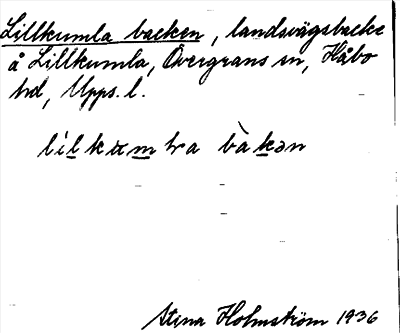 Lillkumla backen, landsvägsbacke
å Lillkumla, Övergrans sn, Håbo
hd, Upps. l.
Stina Holmström 1936